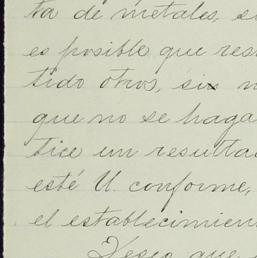 ta de metales, si
es posible que res
tido otros, sin
que no se haga
tice un resulta
esté U. conforme,
el establecimien
Deseo que